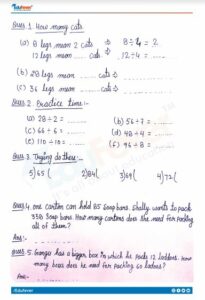 Edufever
Ques 1. How many cats.
(a) 8 legs mean 2 cats ∴ 8÷4 = 2
12 legs mean ..... cats ∴ 12÷4 = .....
(b) 28 legs mean ........ cats ........
(c) 36 legs mean ........ cats ........
Ques 2. Practice time:-
(a) 28÷2 = ........ (b) 56÷7 = ........
(c) 66÷6 = ........ (d) 48÷4 = ........
(e) 110÷10 = ........ (f) 96÷8 = ........
Ques 3. Trying do these:-
5)65( 2)84( 3)69( 4)72(
Ques 4. One carton can hold 85 soap bars. Shelly wants to pack
338 soap bars. How many cartons does she need for packing
all of them?
Ans:-
Ques 5. Ganger has a bigger box in which he packs 12 laddoos. How
many boxes does he need for packing 60 ladoos?
Ans:-